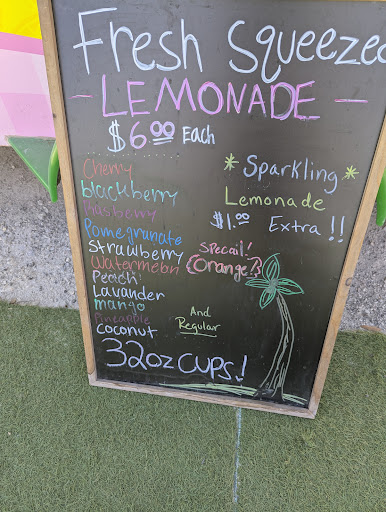 Fresh Squeezed
- LEMONADE -
$6.00 Each
Cherry
blackberry
Rasberry
Pomegranate
Strawberry
Watermelon
Peach
Lavander
mango
Pineapple
coconut
* Sparkling *
Lemonade
$1.00 Extra!!
Specail!
(Orange?)
And
Regular
32oz CUPS!